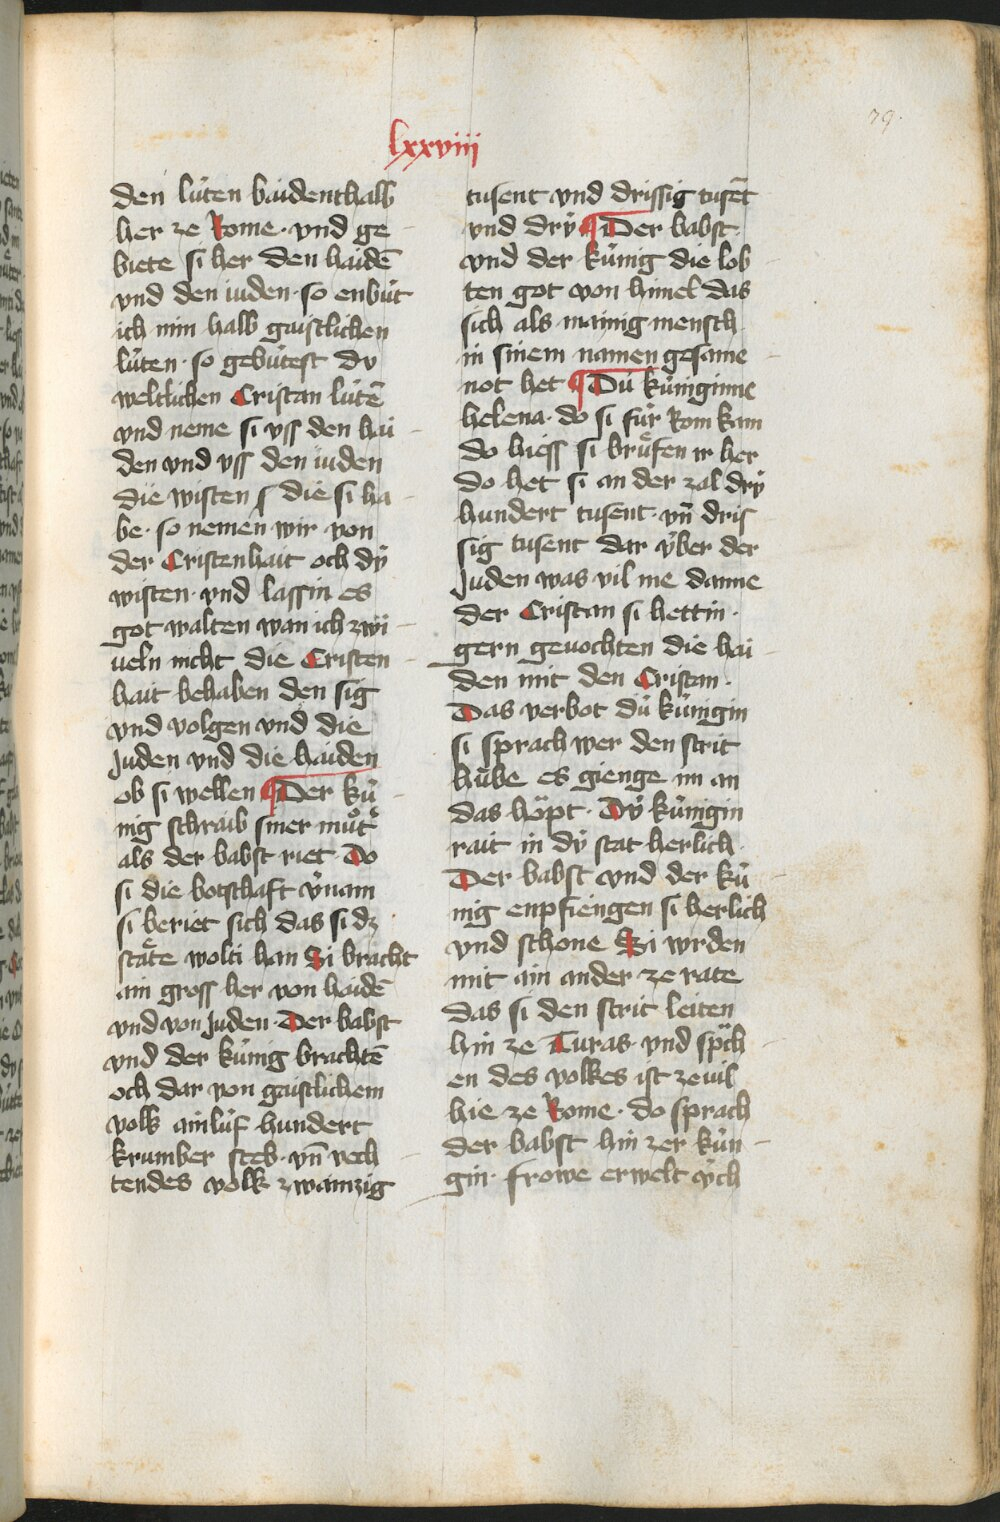 lxxviii
79.
den lúten baidenthalb
her ze Rome · vnd ge
biete si her den haidē
vnd den iuden · so enbút
ich min halb gaistlichen
lúten · so gebútest dv
weltlichen Cristan lútē
vnd neme si vss den hai
den vnd vss den iuden
die wisten so die si ha
be · so nemen wir von
der Cristenhait och dÿ
wisten · vnd lassin es
got walten wan ich zwi
ueln nicht die Cristen
hait behaben den sig
vnd volgen vnd die
Juden vnd die haiden
ob si wellen ¶ Der kú
nig schraib siner můtͤ
als der babst riet · Do
si die botschaft v̓nam
si beriet sich das si dz
stǟte wolti han Si bracht
ain gross her von haidē
vnd von Juden · Der babst
vnd der kúnig brachtē
och dar von gaistlichem
volk ainlúf hundert
krumber steb · vn̄ vech
tendes volk zwainzig
tusent vnd drissig tusēt
vnd drÿ ¶ Der babst
vnd der kúnig die lob
ten got von himel das
sich als mainig mensch
in sinem namen gesame
not het ¶ Dú kúniginne
helena · do si fúr Rom kam
do hiess si brůfen ir her
do het si an der zal drÿ
hundert tusent · vn̄ dris
sig tusent dar ÿber der
Juden was vil me danne
der Cristan si hettin ·
gern geuochten die hai
den mit den Cristan ·
Das verbot dú kúnigin
si sprach wer den strit
húbe es gienge im an
das höpt · Dÿ kúnigin
rait in dÿ stat herlich ·
Der babst vnd der kú
nig enpfiengen si herlich
vnd schone Si wrden
mit ain ander ze rate
das si den strit leiten
hin ze Turas · vnd sp̈ch
en des volkes ist ze vil
hie ze Rome · do sprach
der babst hin zer kún
gin · frowe erwelt v́ch